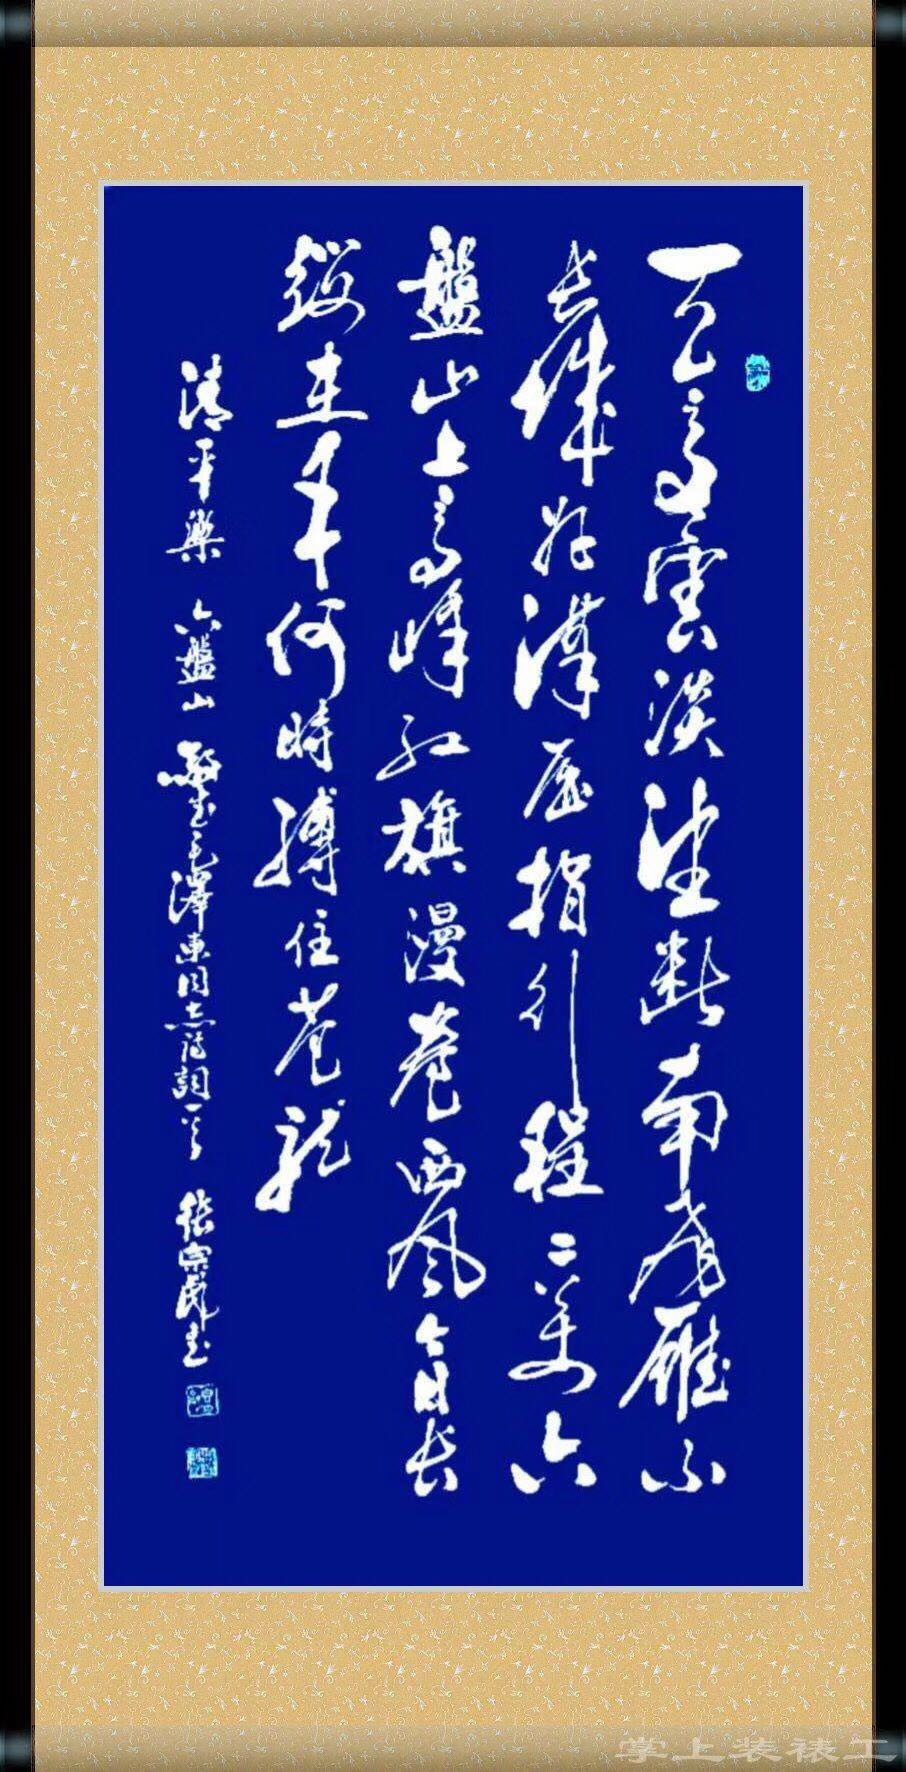 天高雲淡望斷南飛雁不
長城好漢屈指行程二萬六
盤山上高峰紅旗漫卷西風今日長
纓在手何時縛住蒼龍
清平樂 六盤山 書毛澤東同志詩詞一首 張宗書
掌上装裱工